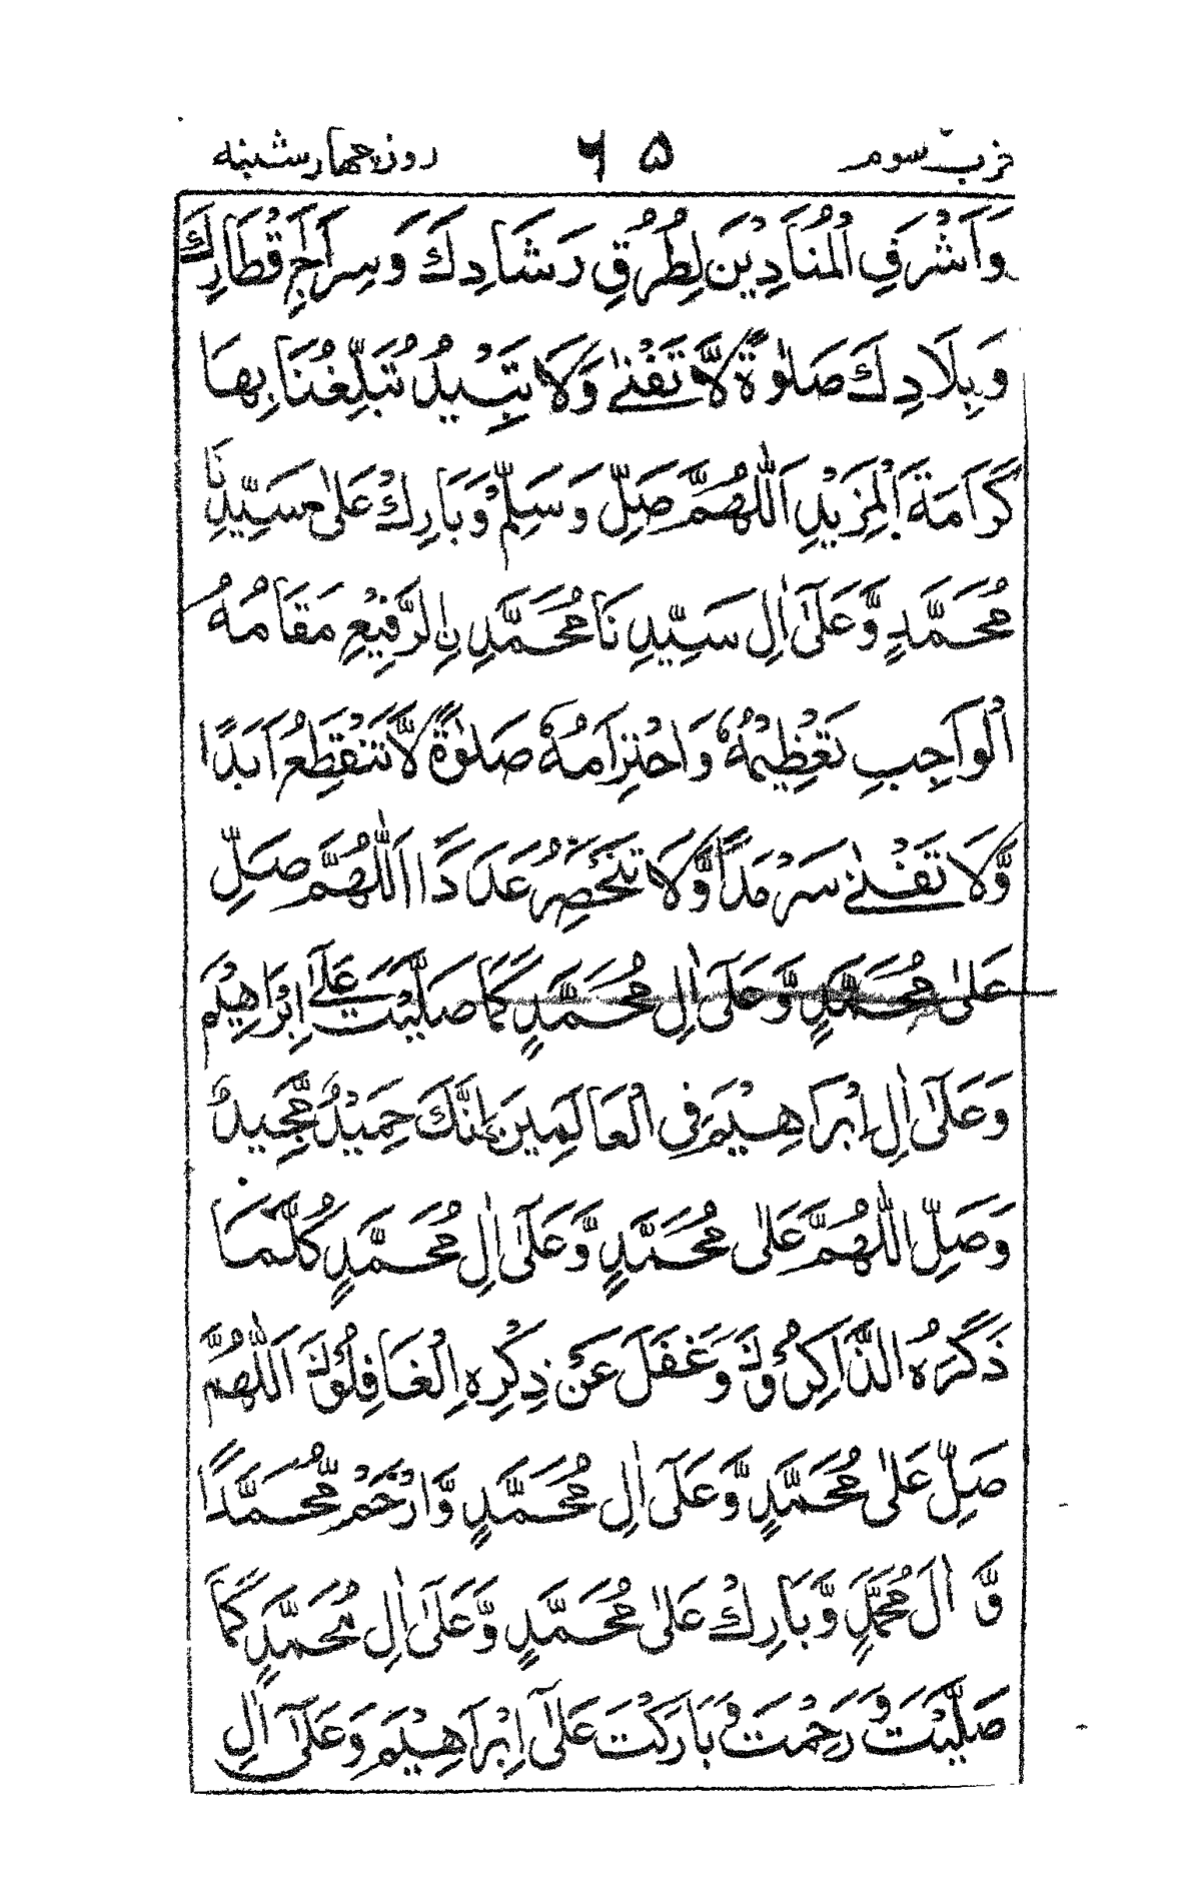 حزب سوم ۶۵ روز چهار شنبه
وَاَشْرَفِ الْمُنَادِيْنَ لِطُرُقِ رَشَادِكَ وَسِرَاجِ اَقْطَارِكَ
وَبِلَادِكَ صَلٰوةً لَّا تَفْنٰى وَلَا تَبِيْدُ تُبَلِّغُنَا بِهَا
كَرَامَةَ الْمَزِيْدِ اَللّٰهُمَّ صَلِّ وَسَلِّمْ وَبَارِكْ عَلٰى سَيِّدِنَا
مُحَمَّدٍ وَّعَلٰٓى اٰلِ سَيِّدِنَا مُحَمَّدِنِ الرَّفِيْعِ مَقَامُهُ
الْوَاجِبِ تَعْظِيْمُهٗ وَاحْتِرَامُهٗ صَلٰوةً لَّا تَنْقَطِعُ اَبَدًا
وَّلَا تَفْنٰى سَرْمَدًا وَّلَا تَنْحَصِرُ عَدَدًا اَللّٰهُمَّ صَلِّ
عَلٰى مُحَمَّدٍ وَّعَلٰٓى اٰلِ مُحَمَّدٍ كَمَا صَلَّيْتَ عَلٰٓى اِبْرَاهِيْمَ
وَعَلٰٓى اٰلِ اِبْرَاهِيْمَ فِى الْعَالَمِيْنَ اِنَّكَ حَمِيْدٌ مَّجِيْدٌ
وَصَلِّ اللّٰهُمَّ عَلٰى مُحَمَّدٍ وَّعَلٰٓى اٰلِ مُحَمَّدٍ كُلَّمَا
ذَكَرَهُ الذَّاكِرُوْنَ وَغَفَلَ عَنْ ذِكْرِهِ الْغَافِلُوْنَ اَللّٰهُمَّ
صَلِّ عَلٰى مُحَمَّدٍ وَّعَلٰٓى اٰلِ مُحَمَّدٍ وَّارْحَمْ مُّحَمَّدًا
وَّ اٰلَ مُحَمَّدٍ وَّبَارِكْ عَلٰى مُحَمَّدٍ وَّعَلٰٓى اٰلِ مُحَمَّدٍ كَمَا
صَلَّيْتَ وَرَحِمْتَ وَبَارَكْتَ عَلٰٓى اِبْرَاهِيْمَ وَعَلٰٓى اٰلِ